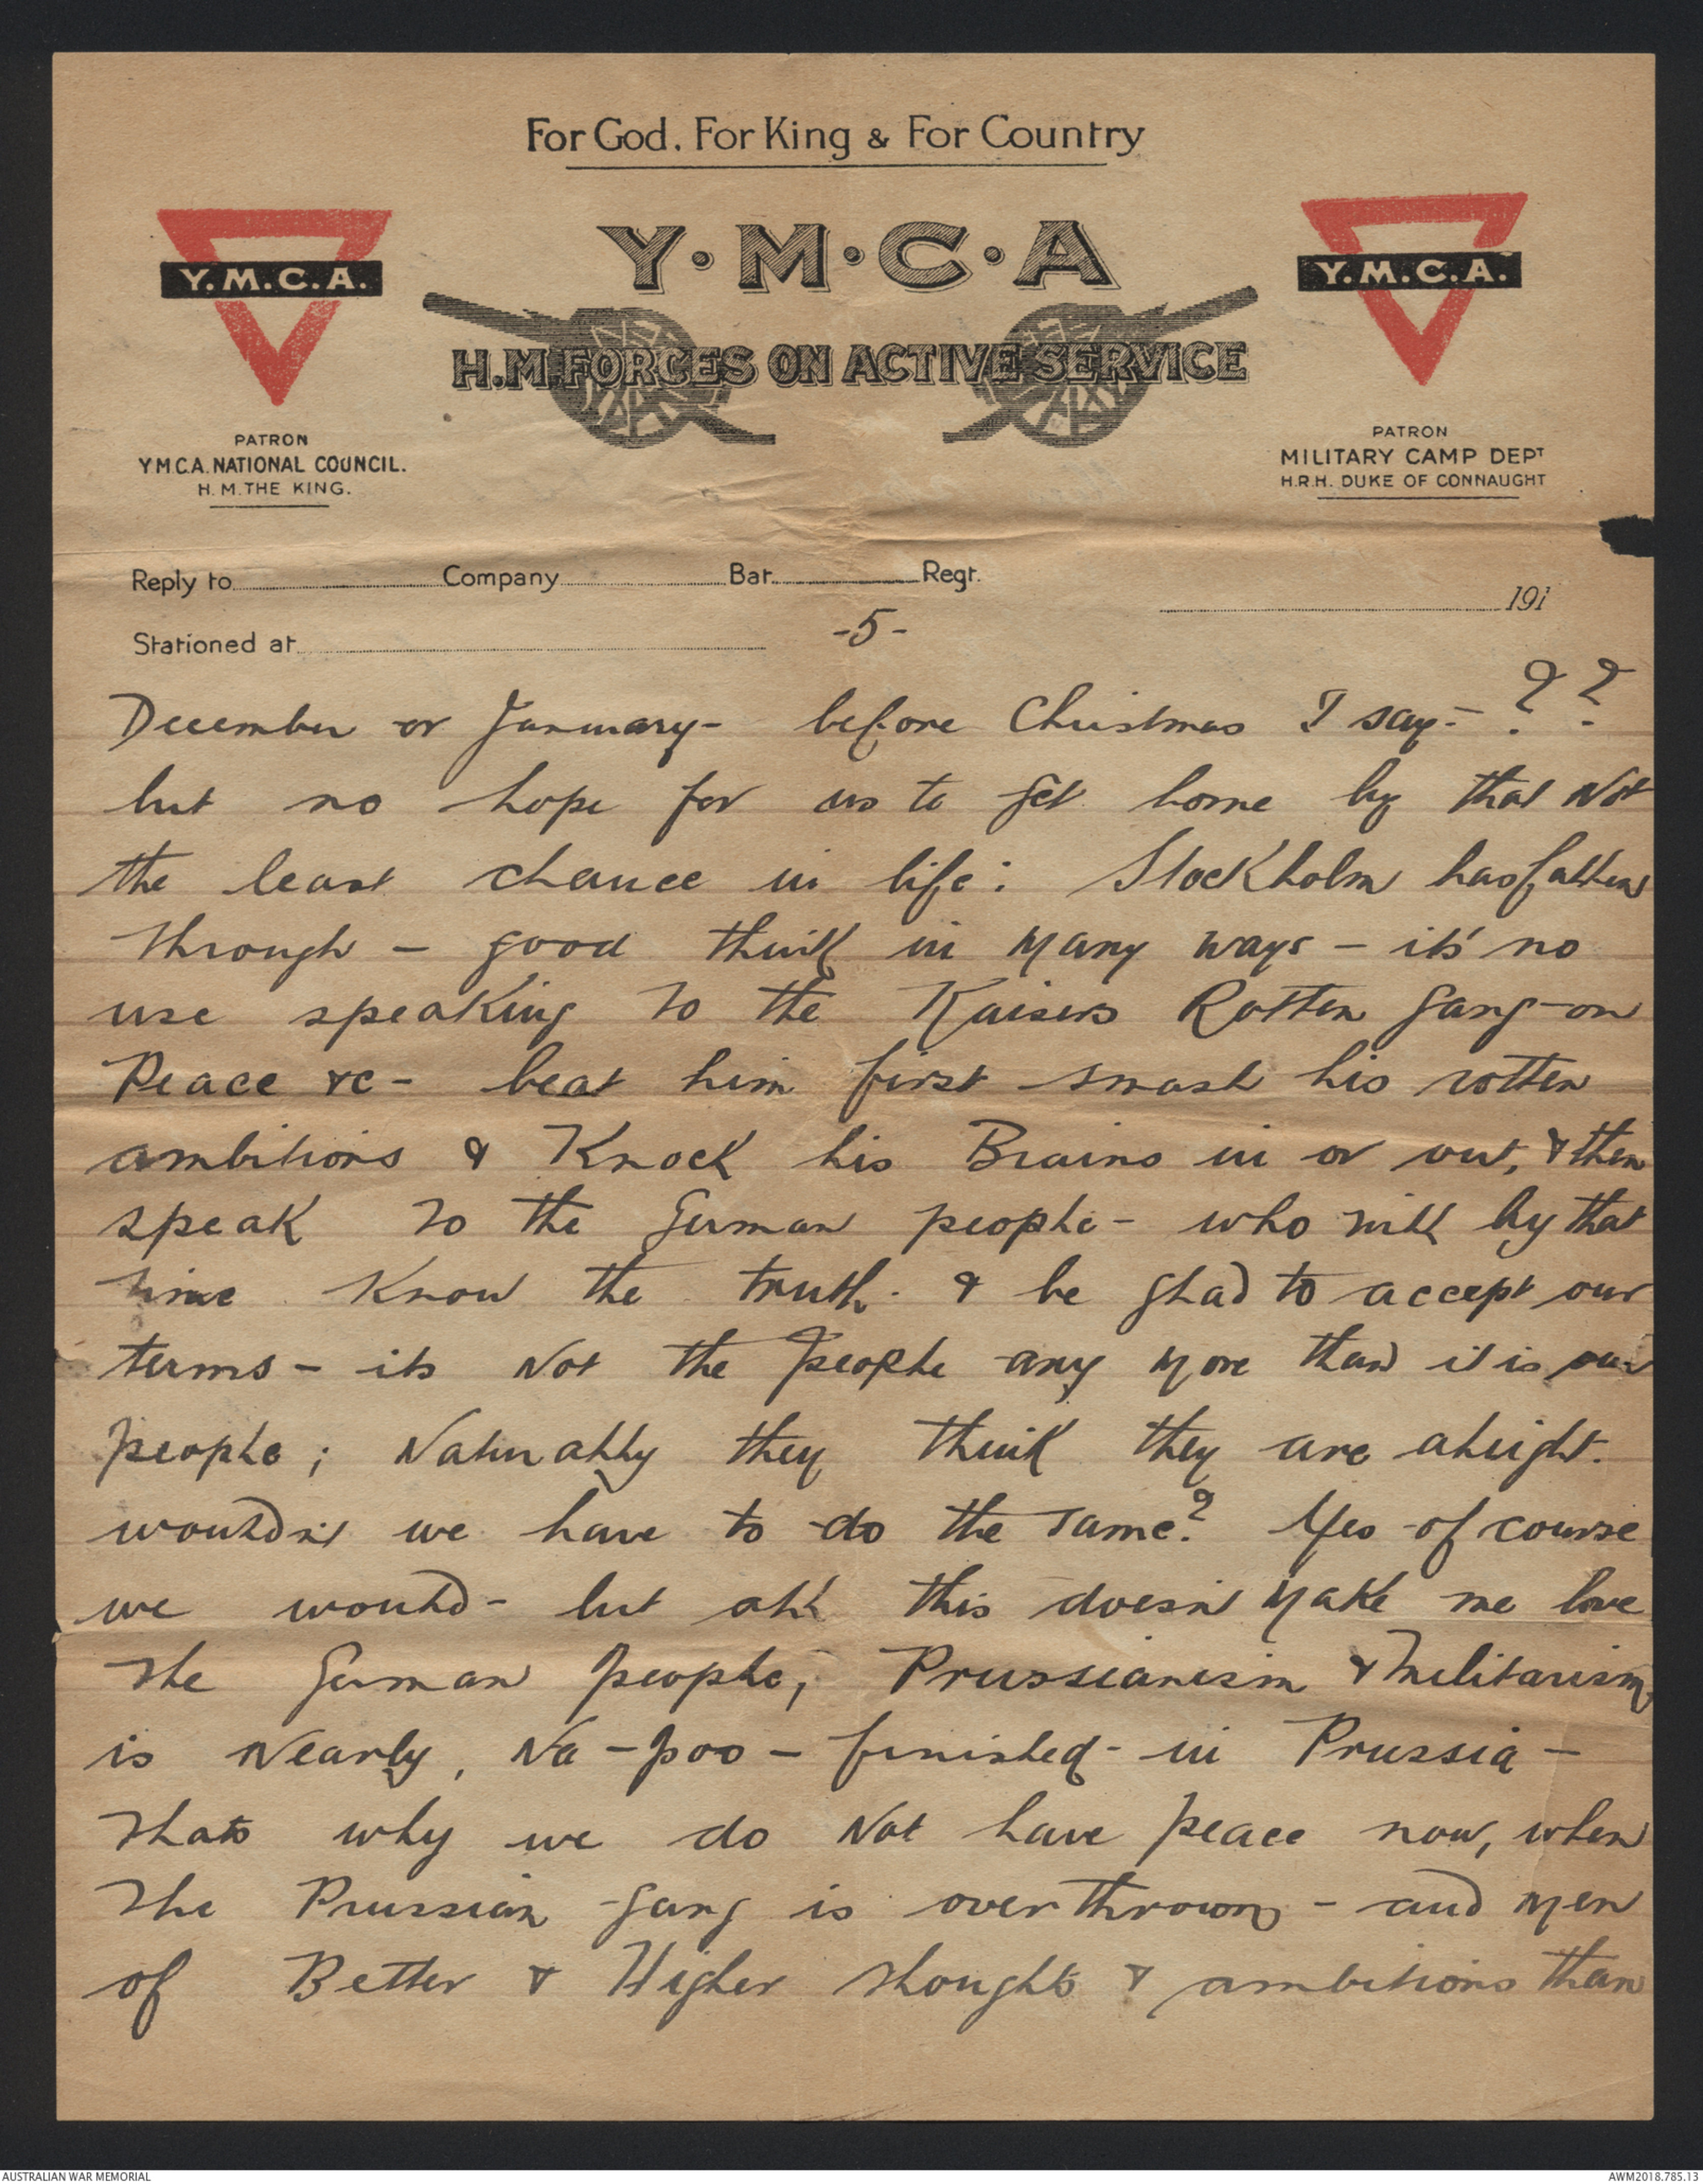 For God. For King & For Country
Y.M.C.A.
Y·M·C·A
Y.M.C.A.
H.M. FORCES ON ACTIVE SERVICE
PATRON
Y.M.C.A. NATIONAL COUNCIL.
H.M. THE KING.
PATRON
MILITARY CAMP DEPT
H.R.H. DUKE OF CONNAUGHT
Reply to Company Bat. Regt.
191
Stationed at
-5-
December or January- before Christmas I say- ??
but no hope for us to get home by that Not
the least chance in life: Stockholm has fallen
through - good think in many ways - it's no
use speaking to the Kaisers Rotten gang-on
Peace &c- beat him first smash his rotten
ambitions & Knock his Brains in or out, & then
speak to the German people- who will by that
time Know the truth. & be glad to accept our
terms - its Not the people any more than it is our
people; Naturally they think they are alright.
wouldn't we have to do the same? Yes of course
we would- but all this doesn't make me love
the German people, Prussianism & Militarism,
is Nearly, Na-poo - finished- in Prussia -
thats why we do Not have peace now, when
the Prussian gang is overthrown - and men
of Better & Higher thoughts & ambitions than
AUSTRALIAN WAR MEMORIAL
AWM2018.785.13